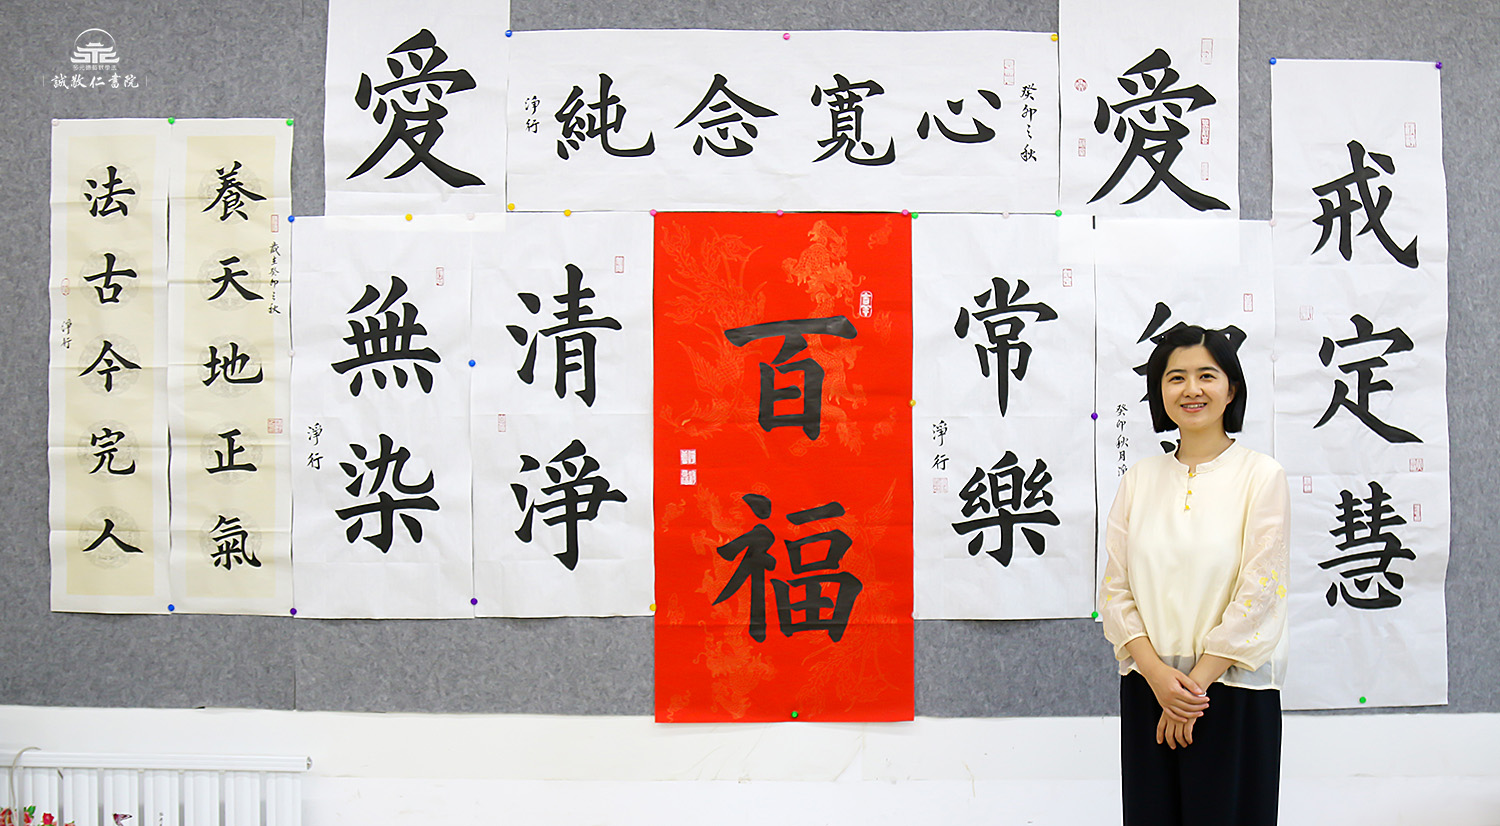 誠敬仁書院
愛
心寬念純
癸卯之秋
淨行
愛
戒定慧
養天地正氣
歲在癸卯之秋
法古今完人
淨行
清淨
無染
淨行
百福
常樂
淨行
癸卯秋月淨